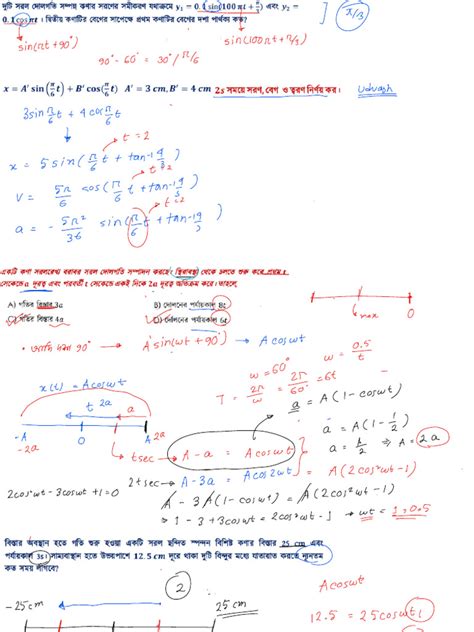 দুটি সরল দোলগতি সম্পন্ন কণার সরণের সমীকরণ যথাক্রমে y₁ = 0.1 sin(100πt + π/3) এবং y₂ =
0.1 cosπt । দ্বিতীয় কণাটির বেগের সাপেক্ষে প্রথম কণাটির বেগের দশা পার্থক্য কত?
π/3
sin(πt+90°)
sin(100πt+π/3)
90° - 60° = 30° / π/6
x = A′ sin(π/6 t) + B′ cos(π/6 t) A′ = 3 cm, B′ = 4 cm 2s সময়ে সরণ, বেগ ও ত্বরণ নির্ণয় কর। Udvash
3 sin π/6 t + 4 cos π/6 t
t = 2
x = 5 sin(π/6 t + tan⁻¹ 4/3)
t = 2
v = 5π/6 cos(π/6 t + tan⁻¹ 4/3)
t = 2
a = - 5π²/36 sin(π/6 t + tan⁻¹ 4/3)
একটি কণা সরলরেখা বরাবর সরল দোলগতি সম্পাদন করছে। (স্থিরাবস্থা) থেকে চলতে শুরু করে প্রথম t
সেকেন্ডে a দূরত্ব এবং পরবর্তী t সেকেন্ডে একই দিকে 2a দূরত্ব অতিক্রম করে। তাহলে,
A) গতির বিস্তার 3a B) দোলনের পর্যায়কাল 8t
C) গতির বিস্তার 4a D) দোলনের পর্যায়কাল 6t
max 0
• আদি দশা 90° → A sin(ωt + 90) → A cosωt
ω = 0.5/t
ω = 60°
T = 2π/ω = 2π/60° = 6t
x(t) = A cosωt
t 2a a
a = A(1 - cosωt)
a = A(1 - 1/2)
a = A/2 ⇒ A = 2a
-A 0 A
-2a 2a
tsec → A - a = A cosωt
2tsec → A - 3a = A cos2ωt = A(2cos²ωt - 1)
2cos²ωt - 3cosωt + 1 = 0
A - 3A(1 - cosωt) = A(2cos²ωt - 1)
⇒ 1 - 3 + 3cosωt = 2cos²ωt - 1 → ωt = 1 = 0.5
বিস্তার অবস্থান হতে গতি শুরু হওয়া একটি সরল ছন্দিত স্পন্দন বিশিষ্ট কণার বিস্তার 25 cm এবং
পর্যায়কাল 3s। সাম্যাবস্থান হতে উভয়পাশে 12.5 cm দূরে থাকা দুটি বিন্দুর মধ্যে যাতায়াত করতে ন্যূনতম
কত সময় লাগবে?
2
A cosωt
-25cm 25 cm
12.5 = 25 cosωt₁